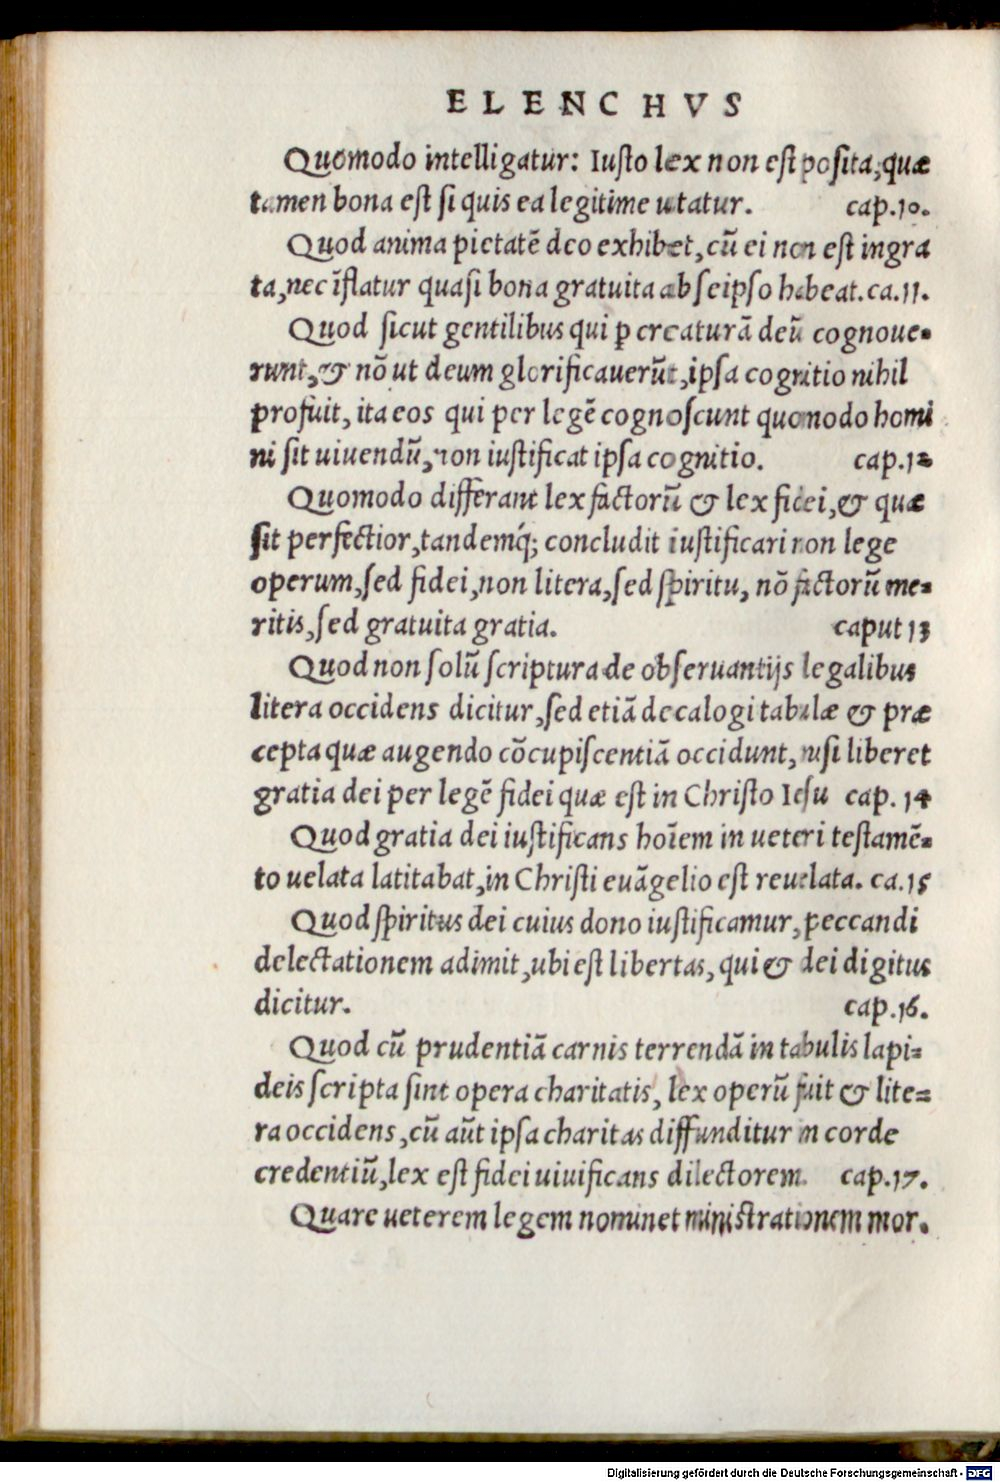 ELENCHVS
Quomodo intelligatur: Iusto lex non est posita, quæ
tamen bona est si quis ea legitime utatur. cap.10.
Quod anima pietatē deo exhibet, cū ei non est ingra
ta, nec īflatur quasi bona gratuita ab seipso habeat. ca.11.
Quod sicut gentilibus qui ꝑ creaturā deū cognoue⸗
runt, & nō ut deum glorificauerūt, ipsa cognitio nihil
profuit, ita eos qui per legē cognoscunt quomodo homi
ni sit uiuendū, non iustificat ipsa cognitio. cap.12
Quomodo differant lex factorū & lex fidei, & quæ
sit perfectior, tandemq́; concludit iustificari non lege
operum, sed fidei, non litera, sed spiritu, nō factorū me⸗
ritis, sed gratuita gratia. caput 13
Quod non solū scriptura de obseruantijs legalibus
litera occidens dicitur, sed etiā decalogi tabulæ & præ
cepta quæ augendo cōcupiscentiā occidunt, nisi liberet
gratia dei per legē fidei quæ est in Christo Iesu cap. 14
Quod gratia dei iustificans hoīem in ueteri testamē⸗
to uelata latitabat, in Christi euāgelio est reuelata. ca.15
Quod spiritus dei cuius dono iustificamur, peccandi
delectationem adimit, ubi est libertas, qui & dei digitus
dicitur. cap.16.
Quod cū prudentiā carnis terrendā in tabulis lapi⸗
deis scripta sint opera charitatis, lex operū fuit & lite⸗
ra occidens, cū aūt ipsa charitas diffunditur in corde
credentiū, lex est fidei uiuificans dilectorem. cap.17.
Quare ueterem legem nominet ministrationem mor.
Digitalisierung gefördert durch die Deutsche Forschungsgemeinschaft - DFG